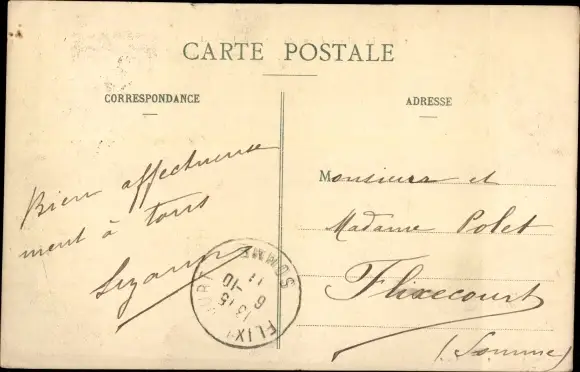 CARTE POSTALE
CORRESPONDANCE
ADRESSE
Bien affectueuse
ment à tous
Suzanne
Monsieur et
Madame Polet
Flixecourt
(Somme)
SOMME
13 15
6 -10
11